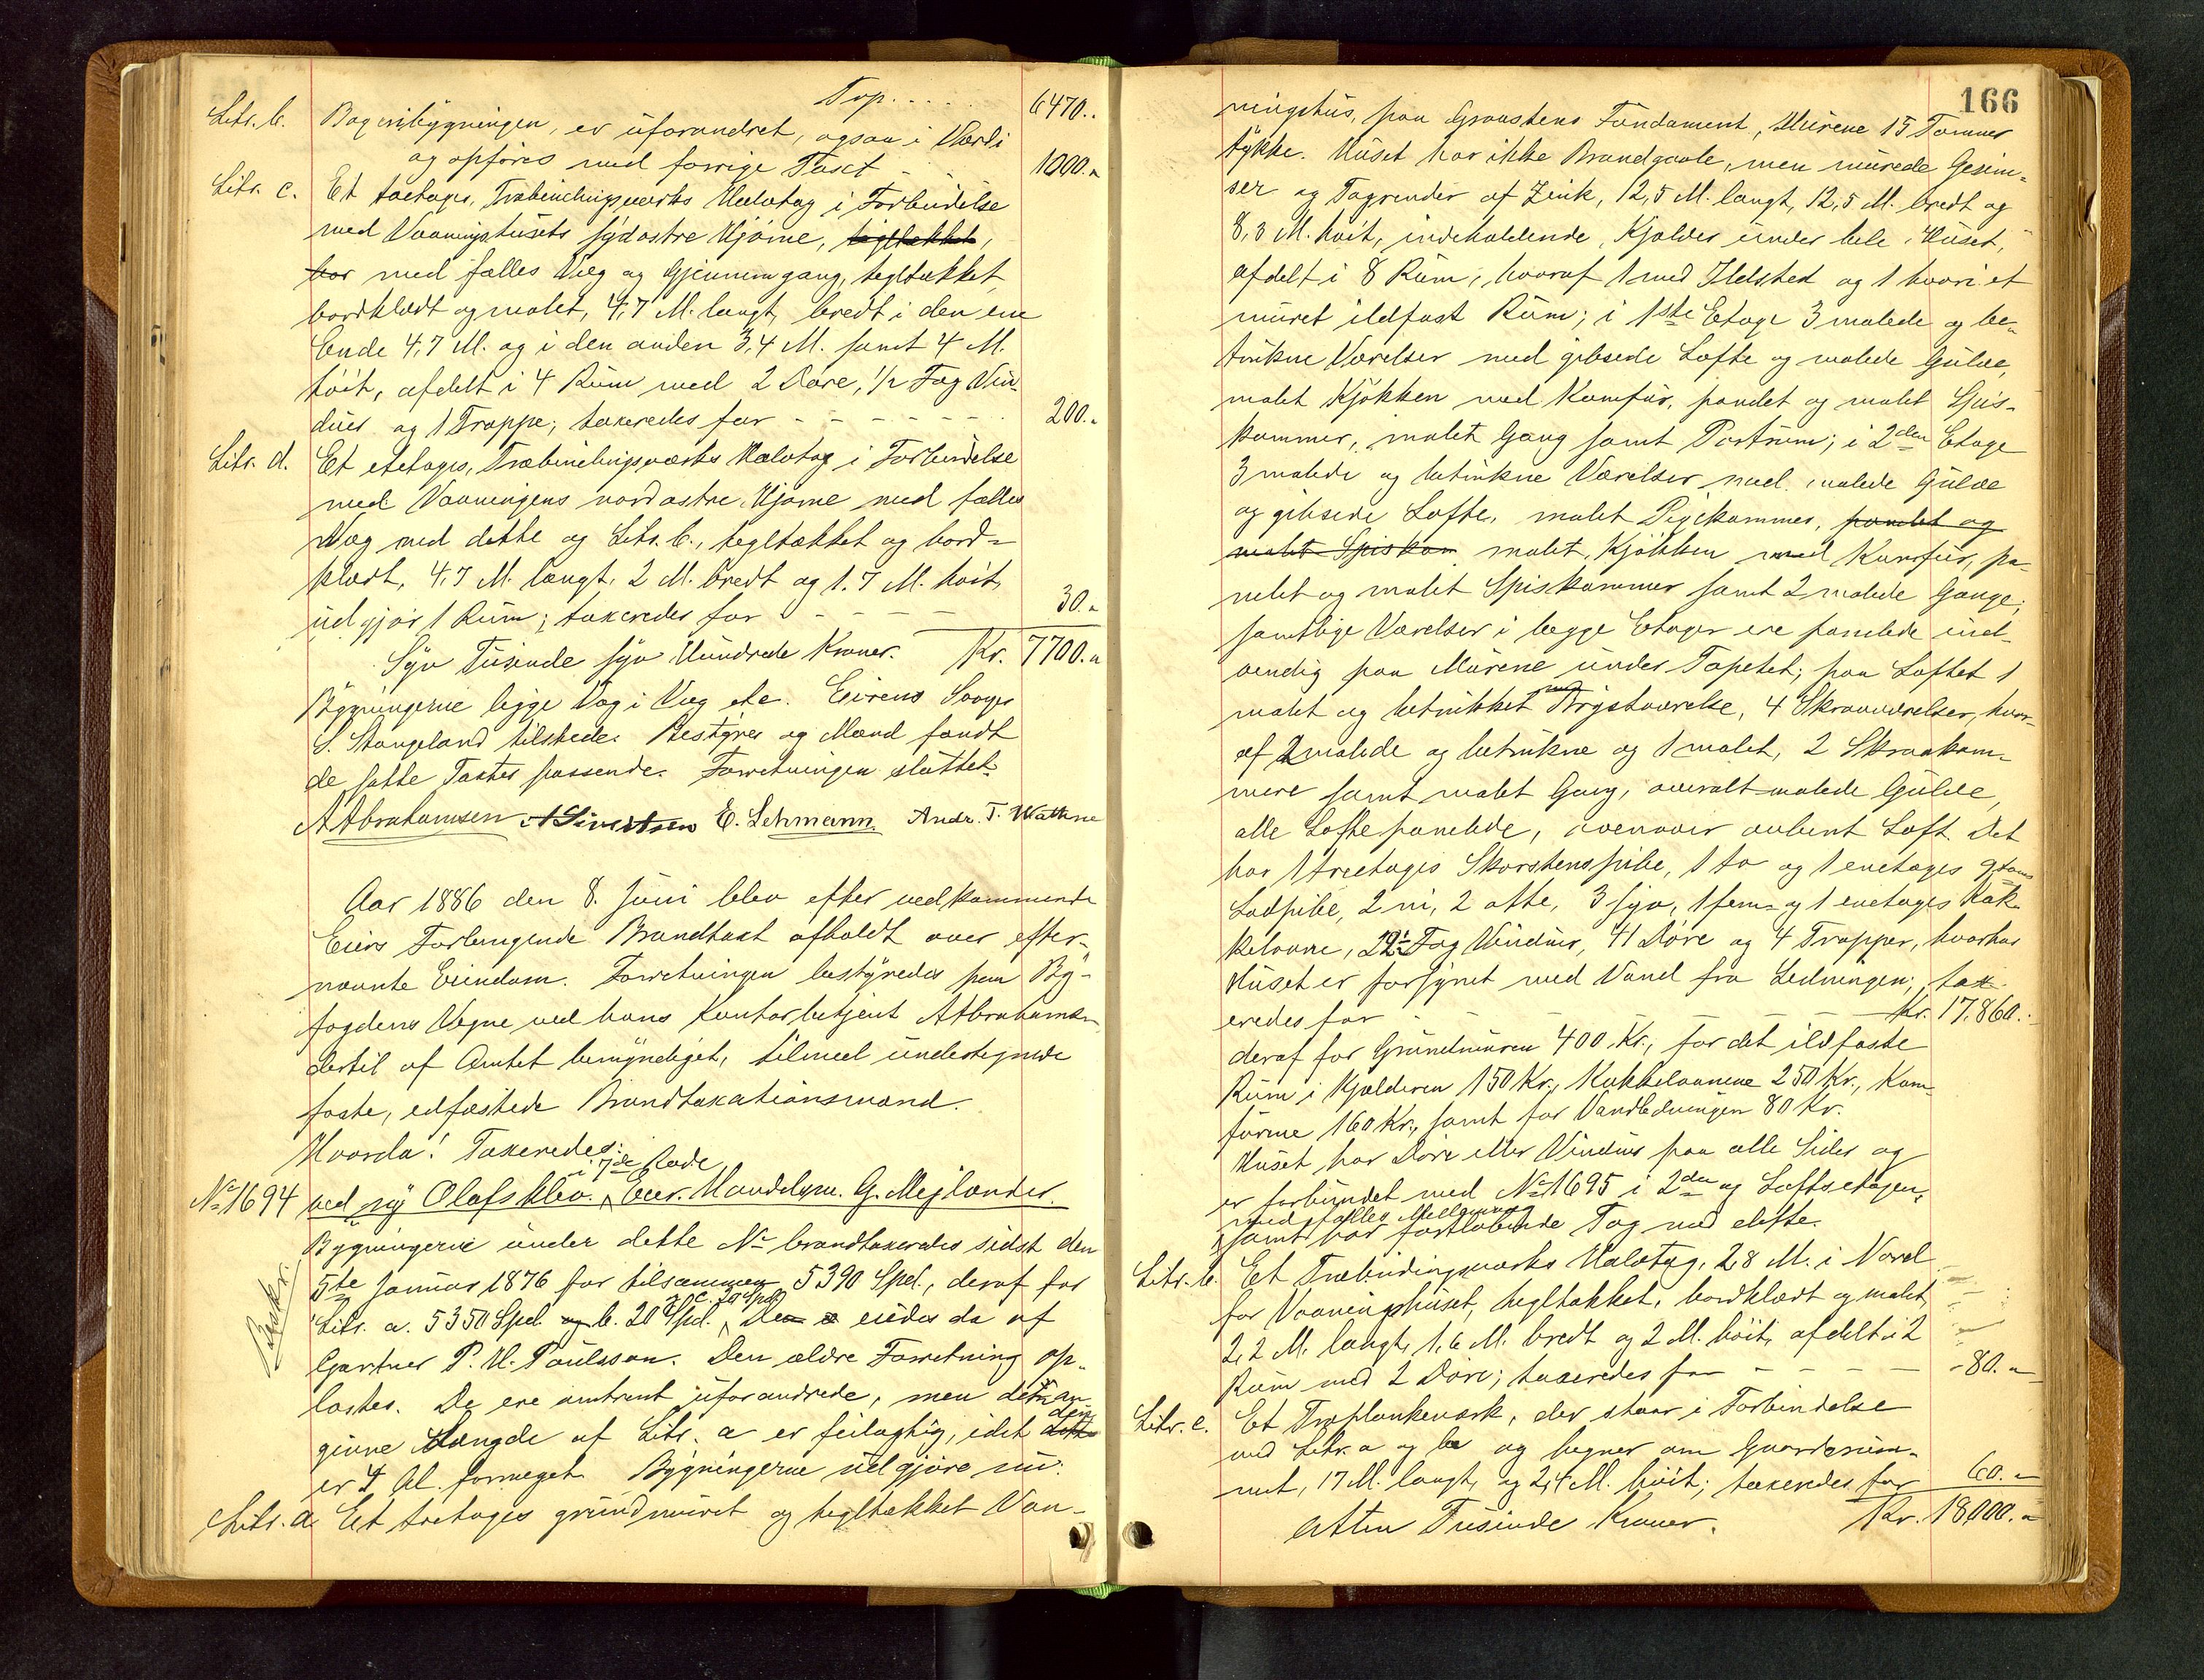 Trp. . . . . 6470..
Litr. b. Bagenbygningen, er uforandret, ogsaa i Værdi
og opføres med forrige Taxt - - 1000.„
Litr. c. Et toetages, Træbindingsværks Halvtag i Forbindelse
med Vaaningshusets sydøstre Hjørne, tegltækket,
har med fælles Væg og Gjennemgang, tegltækket,
bordklædt og malet, 4,7 M. langt, bredt i den ene
Ende 4,7 M. og i den anden 3,4 M. samt 4 M.
høit, afdelt i 4 Rum med 2 Døre, 1/2 Fag Vin-
duer og 1 Trappe; taxeredes for - - - - - 200.„
Litr. d. Et etetages, Træbindingsværks Halvtag i Forbindelse
med Vaaningens nordøstre Hjørne med fælles
Væg med dette og Litr. b., tegltækket og bord-
klædt, 4,7 M. langt, 2 M. bredt og 1.7 M. høit,
udgjør 1 Rum; taxeredes for - - - - 30.„
Syv Tusinde syv Hundrede Kroner. Kr. 7700.„
Bygningerne ligge Væg i Væg etc. Eierens Svoger
S. Stangeland tilstede. Bestyrer og Mænd fandt
de satte Taxter passende. Forretningen sluttet.
A Abrahamsen A Sivertsen E. Lehmann. Andr. T. Wathne
Aar 1886 den 8. Juni blev efter vedkommende
Eiers Forlangende Brandtaxt afholdt over efter-
nævnte Eiendom. Forretningen bestyredes paa By-
fogdens Vegne ved hans Kontorbetjent Abrahamsen
dertil af Amtet bemyndiget, tilmed undertegnede
faste, edfæstede Brandtaxationsmænd.
Hvorda! Taxeredes:
i 7de Rode
No 1694 ved ny Olafsklev. Eier. Handelsm. G. Mejlænder.
Bygningerne under dette No brandtaxeredes sidst den
5te Januar 1876 for tilsammen 5390 Spd., deraf for
og c. 20 Spd.
Litr. a. 5350 Spd. og b. 20 Spd. De eiedes da af
Gartner P. H. Poulsson. Den ældre Forretning op-
Beskr.
læstes. De ere omtrent uforandrede, men den an-
givne Længde af Litr. a er feilagtig, idet den
er 4 Al. formeget. Bygningerne udgjøre nu:
Litr. a. Et toetages grundmuret og tegltækket Vaa-
166
ningshus, paa Graastens Fundament, Murene 15 Tommer
tykke. Huset har ikke Brandgavle, men murede Gesim-
ser og Tagrender af Zink, 12,5 M. langt, 12,5 M. bredt og
8,3 M. høit, indeholdende, Kjælder under hele Huset,
afdelt i 8 Rum, hvoraf 1 med Ildsted og 1 hvori et
muret ildfast Rum; i 1ste Etage 3 malede og be-
trukne Værelser med gibsede Lofte og malede Gulve,
malet Kjøkken med Komfur, panelet og malet Spis-
kammer, malet Gang samt Portrum; i 2den Etage
3 malede og betrukne Værelser med malede Gulve
og gibsede Lofte, malet Pigekammer, panelet og
malet Spiskam malet, Kjøkken med Komfur, pa-
nelet og malet Spiskammer samt 2 malede Gange;
samtlige Værelser i begge Etager ere panelede ind-
vendig paa Murene under Tapetet; paa Loftet 1
malet og betrukket Kvistværelse, 4 Skraaværelser, hvor-
af 2 malede og betrukne og 1 malet, 2 Skraakam-
mere samt malet Gang, overalt malede Gulve,
alle Lofte panelede, ovenover aabent Loft. Det
har 1 treetages Skorstenspibe, 1 to og 1 enetages
Lodpibe, 2 ni, 2 otte, 3 syv, 1 fem- og 1 enetages Kak-
kelovne, Fag Vinduer, 41 Døre og 4 Trapper, hvorhos
Huset er forsynet med Vand fra Ledningen; tax-
eredes for - - - - - Kr. 17,860..
deraf for Grundmuren 400 Kr., for det ildfaste
Rum i Kjælderen 150 Kr., Kakkelovnene 250 Kr., Kom-
furene 160 Kr., samt for Vandledningen 80 Kr.
Huset har Døre eller Vinduer paa alle Sider og
er forbundet med No 1695 i 2den og Loftsetagen,
med fælles Mellemvæg
samt har fortløbende Tag med dette.
Litr. b. Et Træbindingsværks Halvtag, 2,8 M. i Nord
for Vaaningshuset, tegltækket, bordklædt og malet,
2,2 M. langt, 1,6 M. bredt og 2 M. høit, afdelt i 2
Rum med 2 Døre; taxeredes for - - - - 80.„
Litr. c. Et Træplankeværk, der staar i Forbindelse
med Litr. a og b og hegner om Gaardsrum-
met, 17 M. langt, og 2,4 M. høit; taxeredes for 60.„
Atten Tusinde Kroner. Kr. 18,000.„